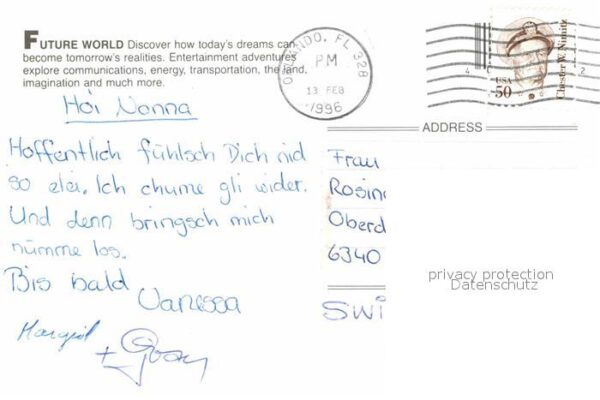 FUTURE WORLD Discover how today's dreams can
become tomorrow's realities. Entertainment adventures
explore communications, energy, transportation, the land,
imagination and much more.
ORLANDO, FL 328
PM
13 FEB
1996
USA
50
Chester W. Nimitz
ADDRESS
Hoi Nonna
Hoffentlich fühlsch Dich nid
so elei. Ich chume gli wider.
Und denn bringsch mich
nümme los.
Bis bald
Vanessa
+
Frau
Rosin
Oberd
6340
SWI
privacy protection
Datenschutz